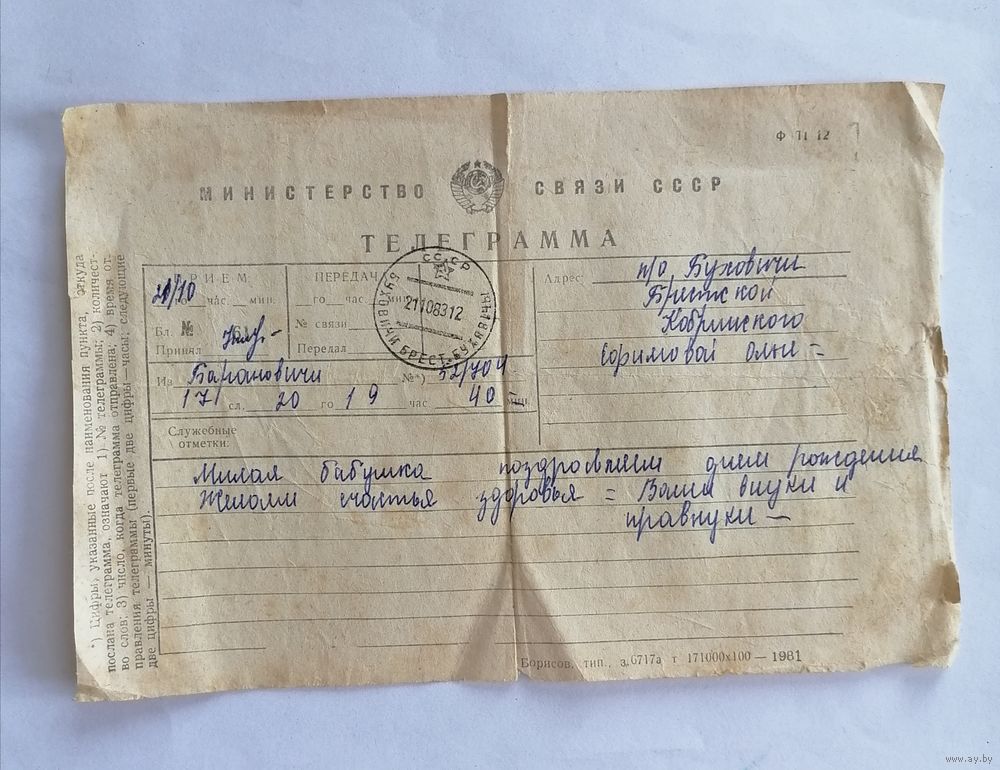 Ф ТГ 12
МИНИСТЕРСТВО СВЯЗИ СССР
ТЕЛЕГРАММА
ПРИЕМ
20/10
го час. мин.
Бл. №
Принял
ПЕРЕДАЧА
го час мин
№ связи
Передал
СССР
БУХОВИЧИ БРЕСТ. БУХАВIЧЫ
21108312
Адрес: п/о Буховичи
Брестской
Кобринского
Ефимовой Ольги =
Из Барановичи №*) 52/704
17 сл. 20 го 19 час 40 мин.
Служебные
отметки:
Милая бабушка поздравляем днем рождения
Желаем счастья здоровья = Ваши внуки и
правнуки —
*) Цифры, указанные после наименования пункта, откуда
послана телеграмма, означают 1) № телеграммы; 2) количест-
во слов; 3) число, когда телеграмма отправлена; 4) время от-
правления телеграммы (первые две цифры — часы; следующие
две цифры — минуты).
Борисов, тип., з.6717а т 171000х100 — 1981
www.ay.by